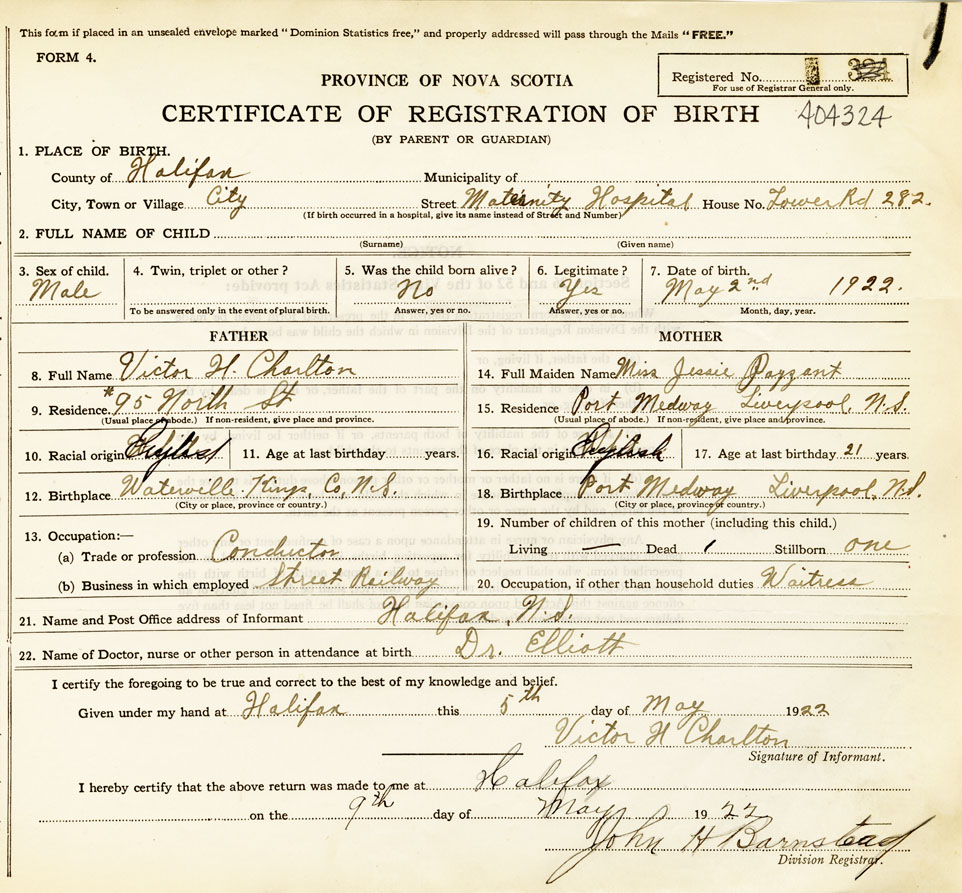 This form if placed in an unsealed envelope marked "Dominion Statistics free," and properly addressed will pass through the Mails "FREE."
FORM 4.
PROVINCE OF NOVA SCOTIA
Registered No. 324
For use of Registrar General only.
CERTIFICATE OF REGISTRATION OF BIRTH 404324
(BY PARENT OR GUARDIAN)
1. PLACE OF BIRTH.
County of Halifax Municipality of
City, Town or Village City Street Maternity Hospital House No. Tower Rd 282.
(If birth occurred in a hospital, give its name instead of Street and Number)
2. FULL NAME OF CHILD
(Surname) (Given name)
3. Sex of child. 4. Twin, triplet or other? 5. Was the child born alive? 6. Legitimate? 7. Date of birth.
Male No Yes May 2nd 1922.
To be answered only in the event of plural birth. Answer, yes or no. Answer, yes or no. Month, day, year.
FATHER MOTHER
8. Full Name Victor H. Charlton 14. Full Maiden Name Miss Jessie Payzant
9. Residence. *95 North St 15. Residence Port Medway Liverpool, N.S.
(Usual place of abode.) If non-resident, give place and province. (Usual place of abode.) If non-resident, give place and province.
10. Racial origin English 11. Age at last birthday years. 16. Racial origin English 17. Age at last birthday 21 years.
12. Birthplace Waterville Kings, Co, N.S. 18. Birthplace Port Medway Liverpool, N.S.
(City or place, province or country.) (City or place, province or country.)
19. Number of children of this mother (including this child.)
13. Occupation:—
(a) Trade or profession Conductor Living — Dead 1 Stillborn one
(b) Business in which employed Street Railway 20. Occupation, if other than household duties Waitress
21. Name and Post Office address of Informant Halifax, N.S.
22. Name of Doctor, nurse or other person in attendance at birth Dr. Elliott
I certify the foregoing to be true and correct to the best of my knowledge and belief.
Given under my hand at Halifax this 5th day of May 1922
Victor H Charlton
Signature of Informant.
I hereby certify that the above return was made to me at Halifax
on the 9th day of May 1922
John H Barnstead
Division Registrar.